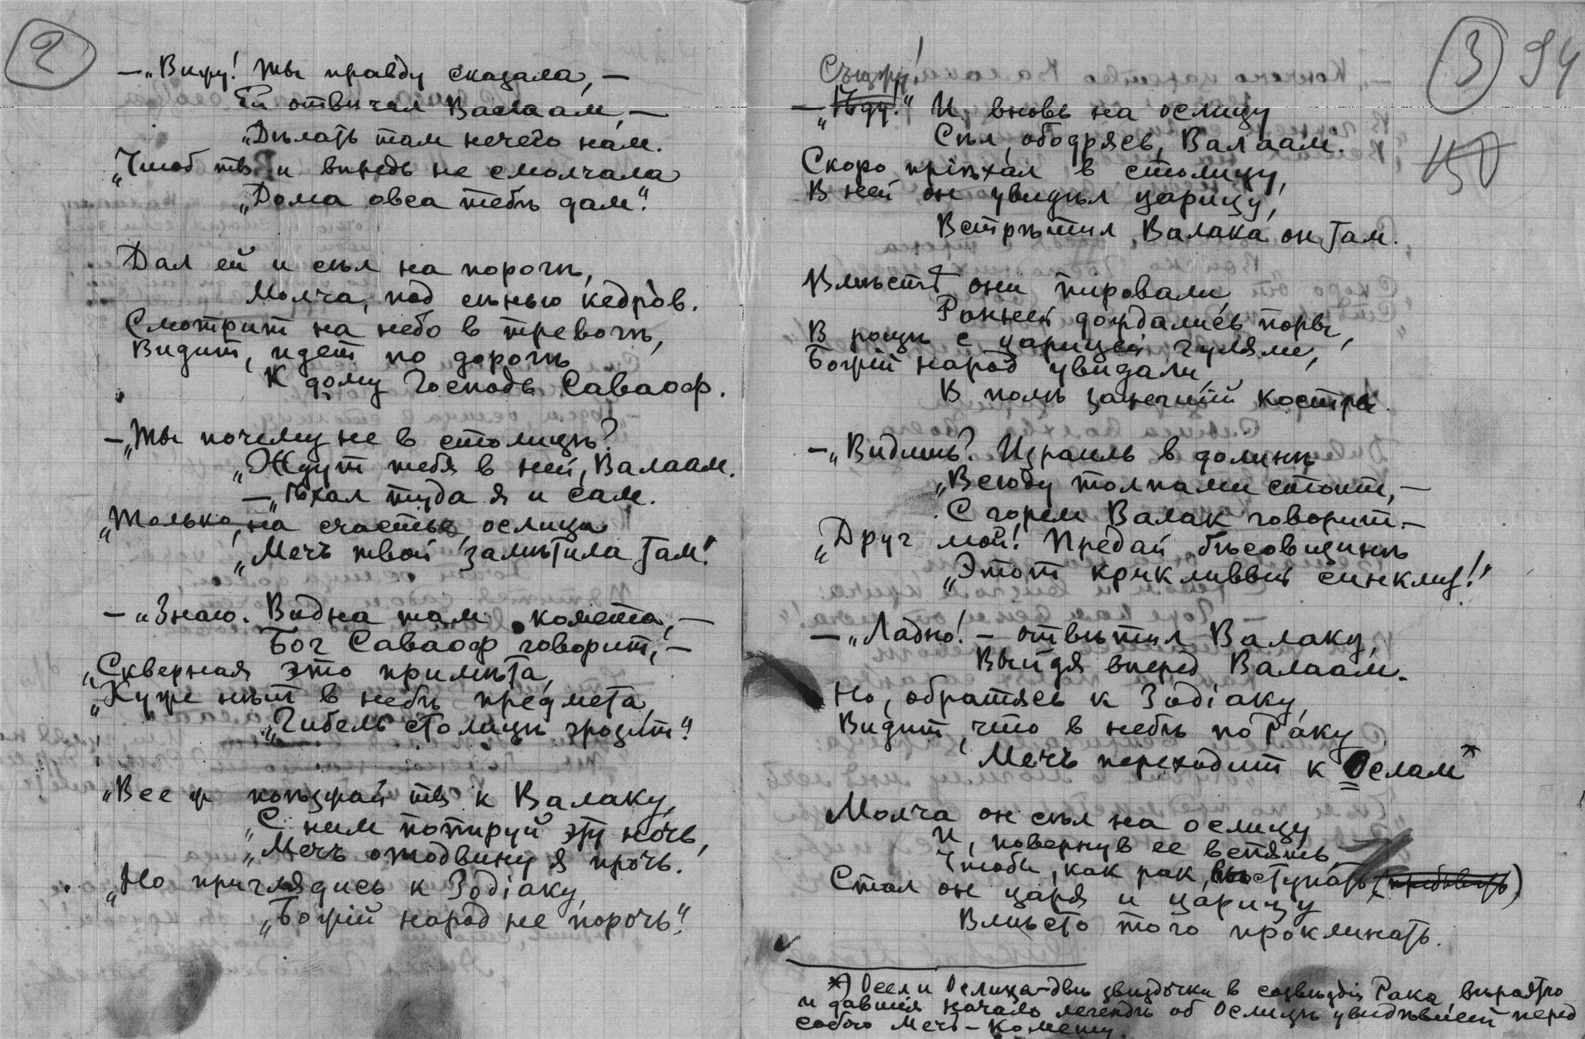 2
—„Вижу! Ты правду сказала, —
Ей отвѣчал Валаам, —
„Дѣлать там нечего нам.
„Чтоб ты и впредь не смолчала
„Дома овса тебѣ дам“.
Дал ей и сѣл на порогѣ,
Молча, под сѣнью кедров.
Смотрит на небо в тревогѣ,
Видит, идет по дорогѣ
К дому Господь Саваоф.
—„Ты почему не в столицѣ?
„Ждут тебя в ней, Валаам.
—„Ѣхал туда я и сам.
„Только, на счастье, ослица
„Мечъ твой замѣтила там!
—„Знаю. Видна там комета, —
Бог Саваоф говорит, —
„Скверная это примѣта,
„Хуже нѣт в небѣ предмета,
„Гибель столицѣ грозит“.
„Все ж поѣзжай ты к Валаку,
„С ним попируй эту ночь,
„Мечъ отодвину я прочь.
„Но приглядись к Зодіаку,
„Божій народ не порочь“.
3 94
150
Съѣзжу!
—„Ѣду!“ И вновь на ослицу
Сѣл, ободрясь, Валаам.
Скоро пріѣхал в столицу,
В ней он увидѣл царицу,
Встрѣтил Валака он там.
Вмѣстѣ они пировали
Ранней дождались поры,
В рощѣ с царицей гуляли,
Божій народ увидали,
В полѣ зажегший костры.
—„Видишь? Израиль в долинѣ
„Всюду толпами стоит, —
С горем Валак говорит. —
„Друг мой! Предай бѣсовщинѣ
„Этот крикливый синклит!“
—„Ладно! — отвѣтил Валаку,
Выйдя вперед Валаам.
Но, обратясь к Зодіаку,
Видит, что в небѣ по Раку
Мечъ переходит к Ослам*
Молча он сѣл на ослицу
И, повернув ее вспять,
Чтобы, как рак, выступать,
Стал он царя и царицу
Вмѣсто того проклинать.
*) Осел и Ослица — двѣ звѣздочки в созвѣздіи Рака, вѣроятно
и давшія начало легендѣ об Ослицѣ увидѣвшей перед
собою Мечъ — Комету.